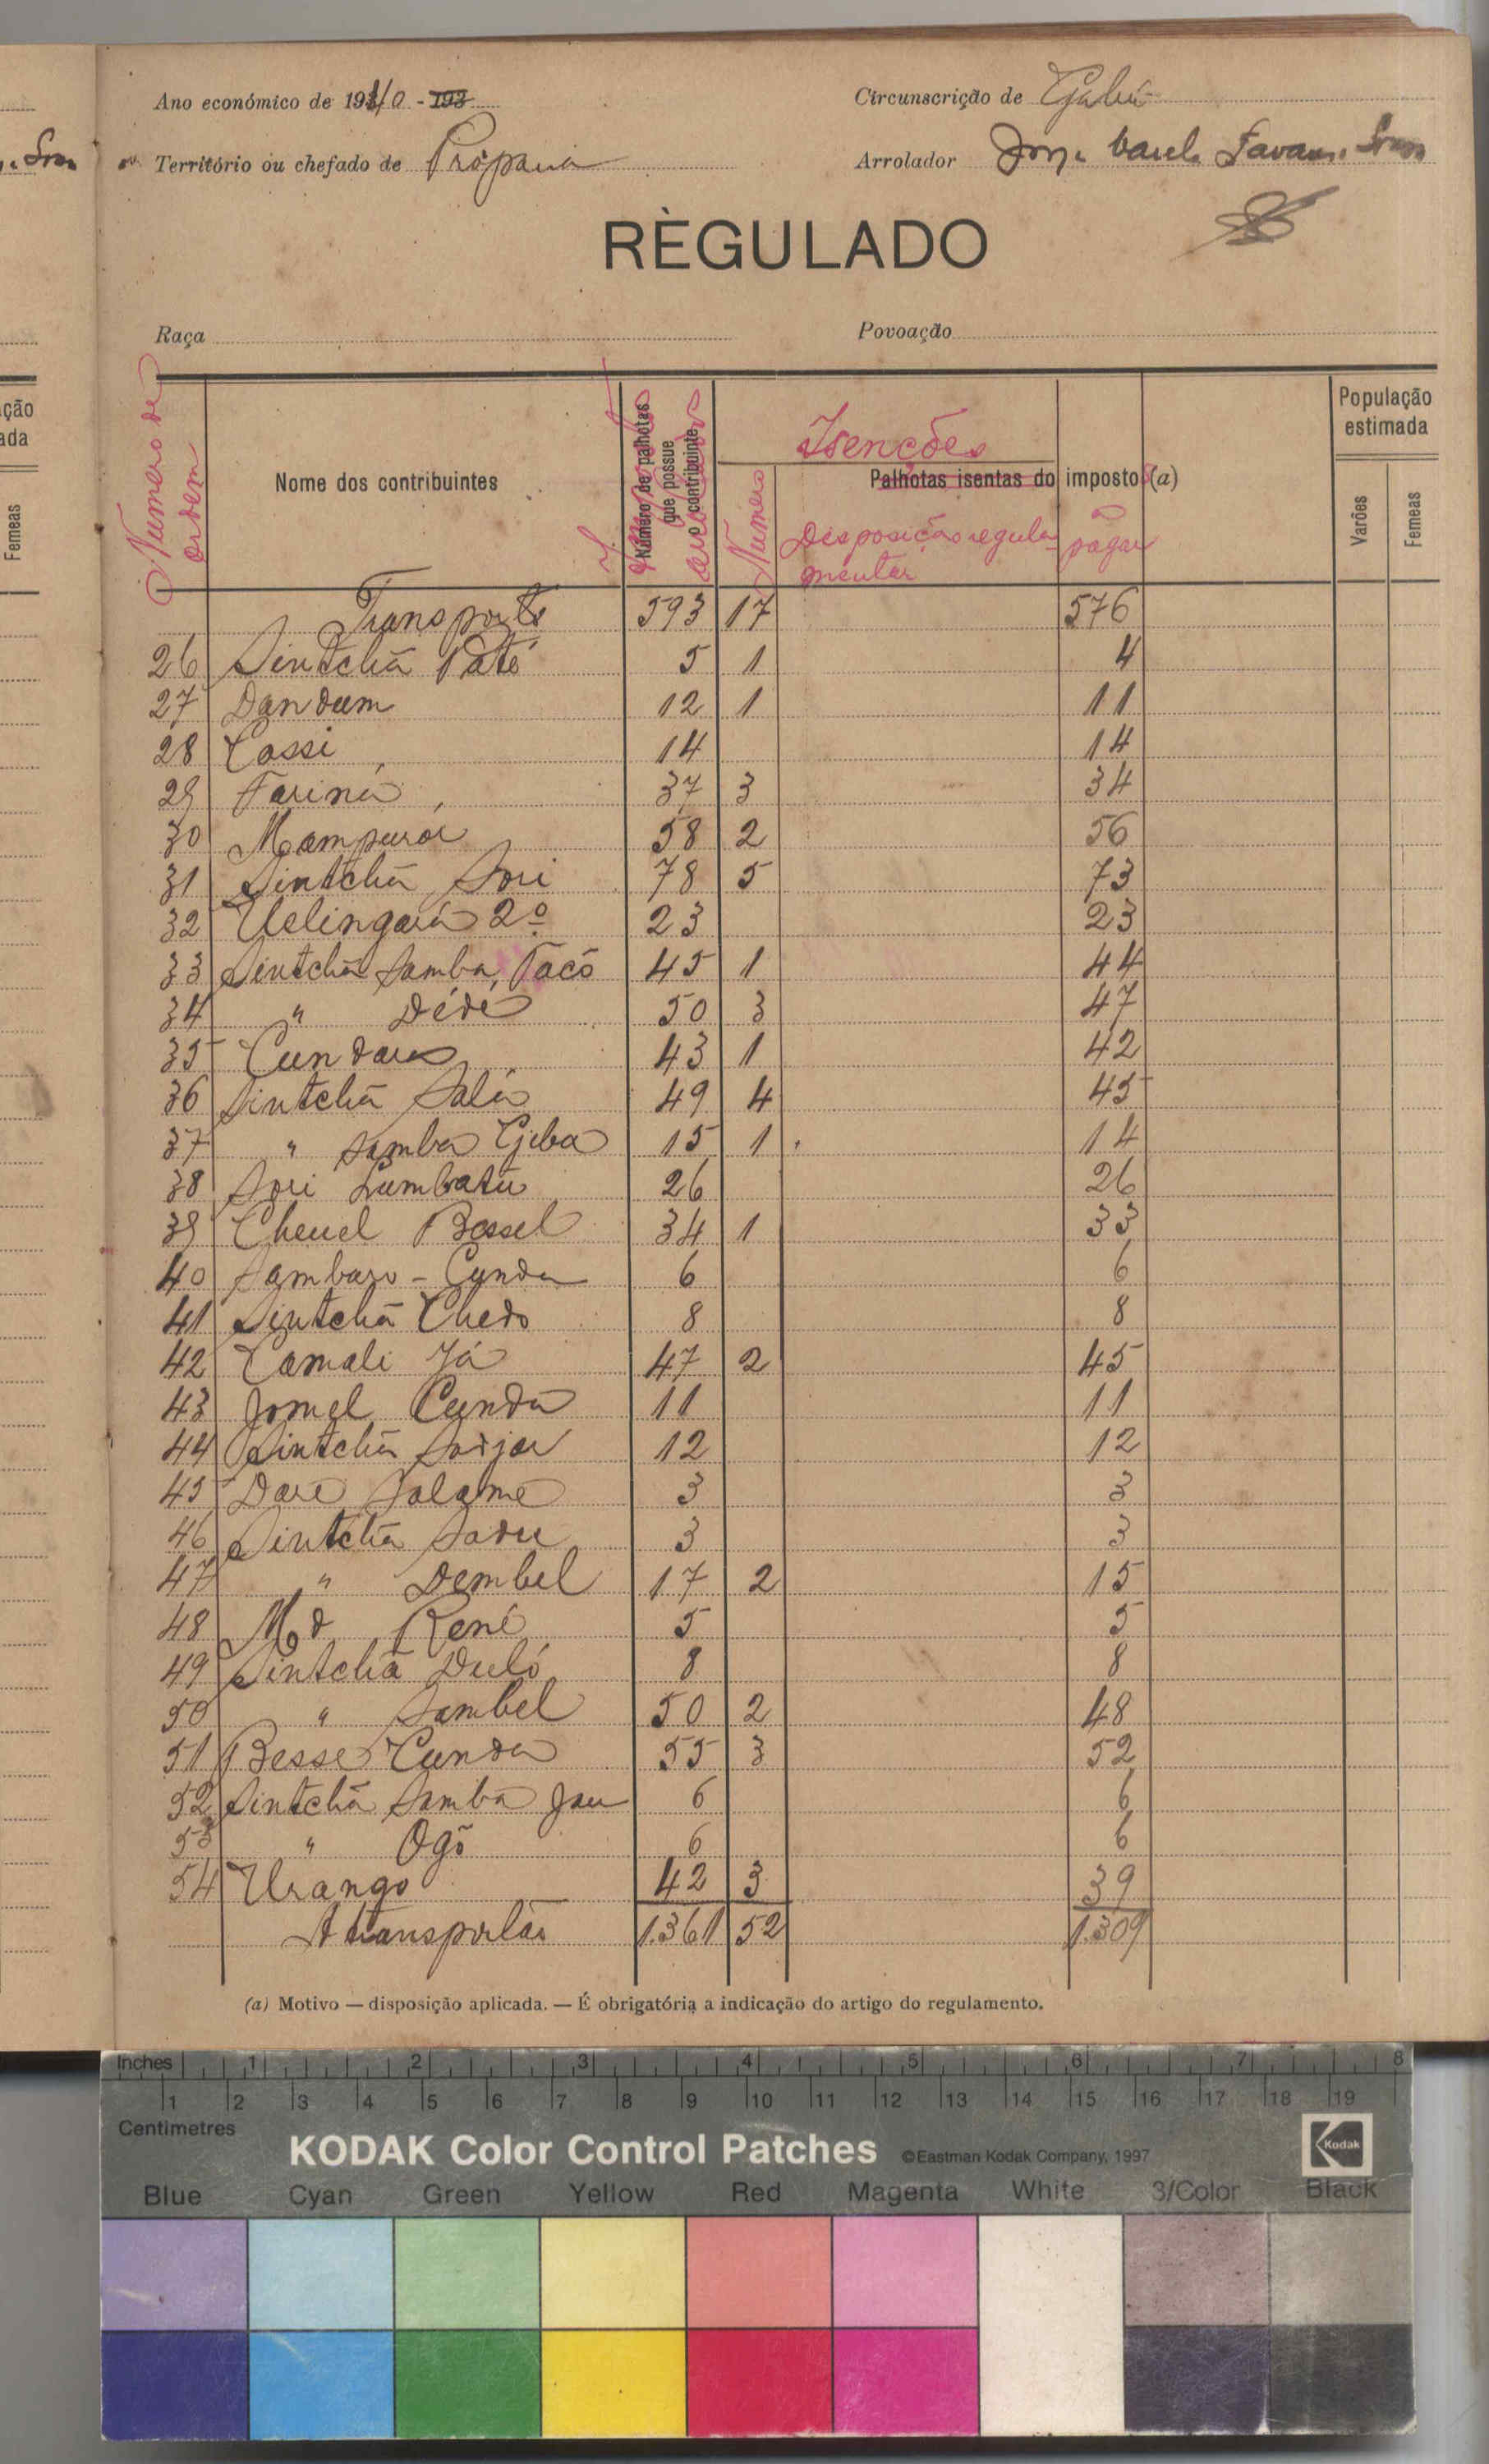 Ano económico de 1940 - 193
Circunscrição de Gabú
Território ou chefado de Própana
Arrolador Jorge
RÈGULADO
Raça
Povoação
Numero de ordem
Nome dos contribuintes
Número de palhotas que possue o contribuinte
Isenções
Palhotas isentas do imposto (a)
Número
Disposição regulamentar
pagar
População estimada
Varões
Femeas
Transporte 593 17 576
26 Sintchã Paté 5 1 4
27 Dandum 12 1 11
28 Cassi 14 14
29 Fariná 37 3 34
30 Mampurá 58 2 56
31 Sintchã Sori 78 5 73
32 Uelingará 2º 23 23
33 Sintchã Samba Tacó 45 1 44
34 " Dédé 50 3 47
35 Cundara 43 1 42
36 Sintchã Salú 49 4 45
37 " Samba Geba 15 1 14
38 Sori Lumbatu 26 26
39 Cheuel Bossel 34 1 33
40 Sambaro - Cunda 6 6
41 Sintchã Chedo 8 8
42 Camali Já 47 2 45
43 Jomel Cunda 11 11
44 Sintchã Sorja 12 12
45 Dare Salame 3 3
46 Sintchã Sadu 3 3
47 " Dembel 17 2 15
48 Md René 5 5
49 Sintchã Duló 8 8
50 " Sambel 50 2 48
51 Besse Cunda 55 3 52
52 Sintchã Samba Jau 6 6
53 " Ogõ 6 6
54 Urango 42 3 39
A transportar 1.361 52 1.309
(a) Motivo — disposição aplicada. — É obrigatória a indicação do artigo do regulamento.
ção
ada
Femeas
Inches 1 2 3 4 5 6 7 8
1 2 3 4 5 6 7 8 9 10 11 12 13 14 15 16 17 18 19
Centimetres
KODAK Color Control Patches ©Eastman Kodak Company, 1997 Kodak
Blue Cyan Green Yellow Red Magenta White 3/Color Black